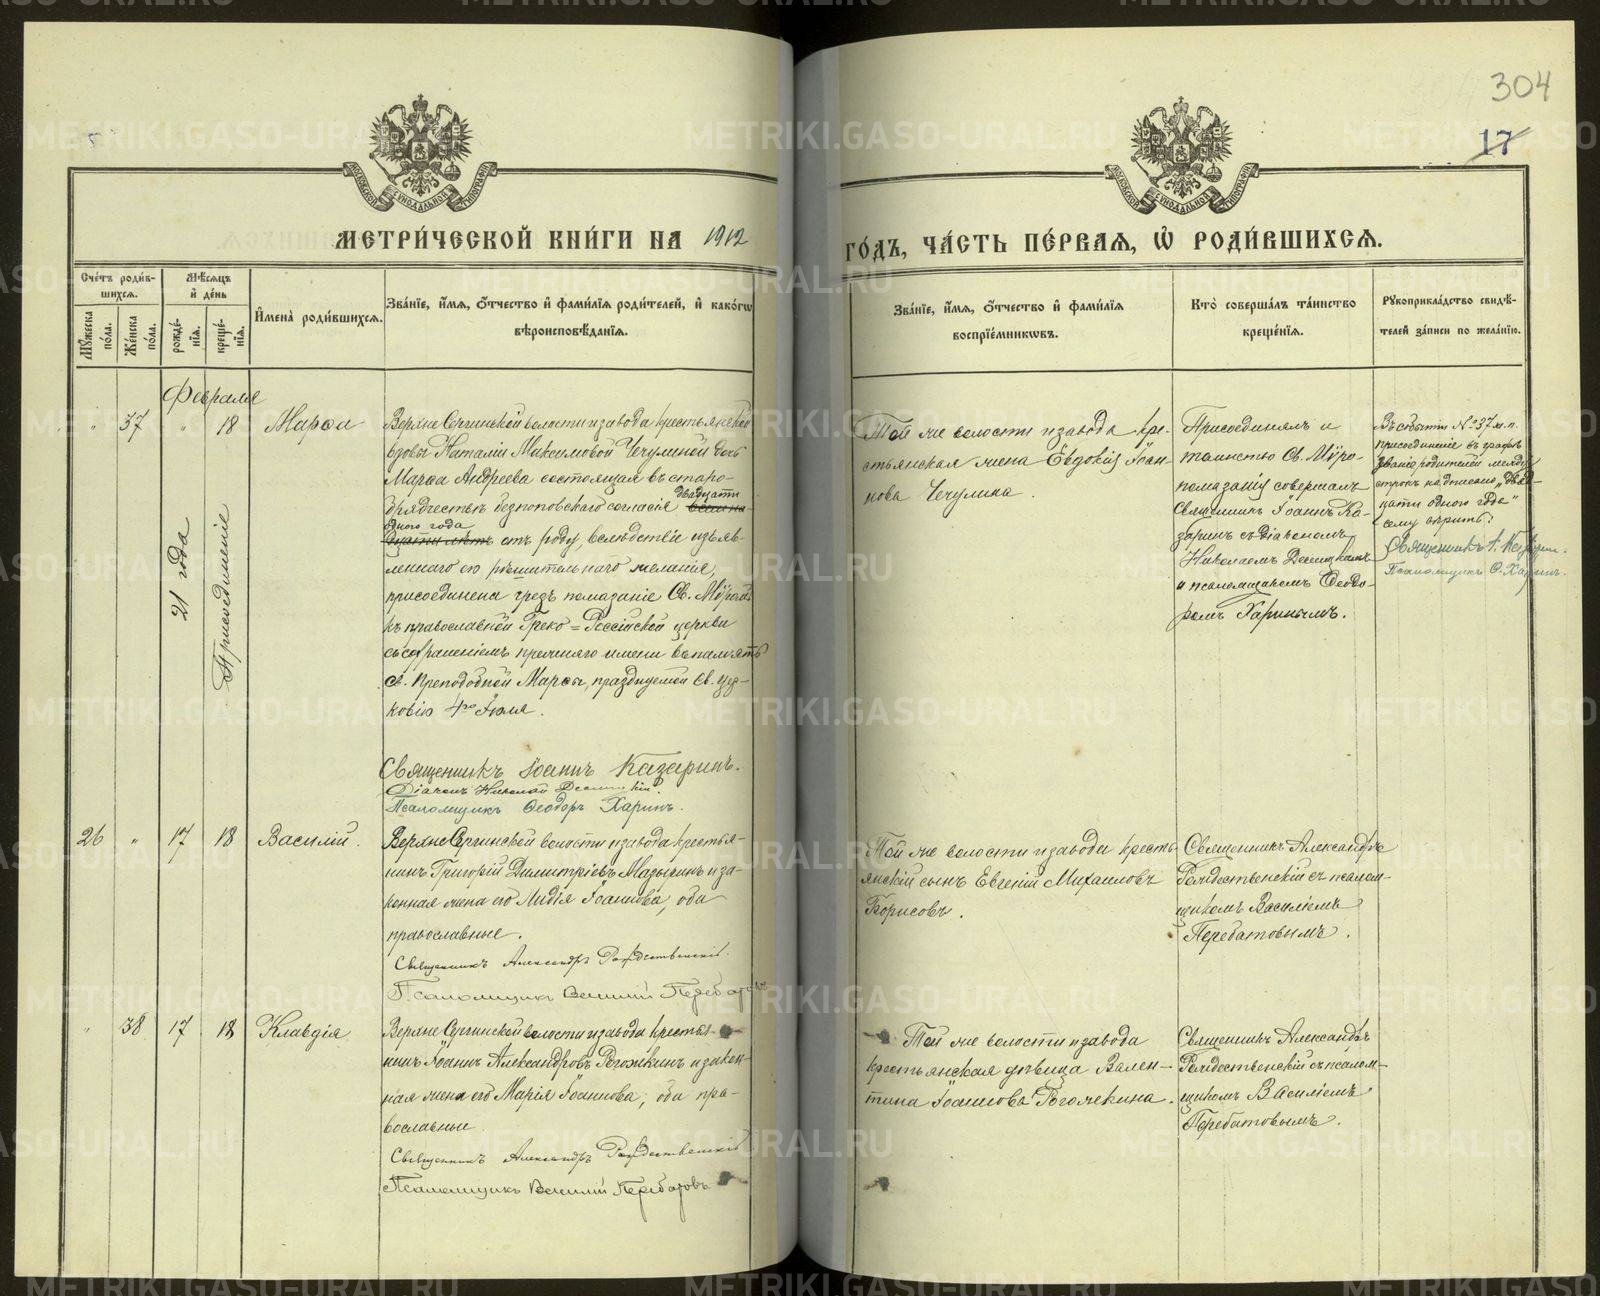 304
17
МЕТРИ́ЧЕСКОЙ КНИ́ГИ НА 1912
ГО́ДЪ, ЧА́СТЬ ПЕ́РВАѦ, Ѡ҆ РОДИ́ВШИХСѦ.
Сче́тъ роди́в-
шихсѧ.
Мꙋ́жеска по́ла.
Же́нска по́ла.
Мѣ́сѧцъ и҆ де́нь
рожде́-
нїѧ.
креще́-
нїѧ.
И҆мена̀ роди́вшихсѧ.
Зва́нїе, и҆́мѧ, ѻ҆́тчество и҆ фами́лїѧ роди́телей, и҆ како́гѡ
вѣроисповѣ́данїѧ.
Зва́нїе, и҆́мѧ, ѻ҆́тчество и҆ фами́лїѧ
воспрїе́мникѡвъ.
Кто̀ соверша́лъ та́инство
креще́нїѧ.
Рꙋкоприкла́дство свидѣ́-
телей за́писи по жела́нїю.
Февраля
" 37 " 18 Марѳа
21 года
Присоединеніе
Верхне Сергинской волости и завода крестьянской
вдовы Наталіи Максимовой Чечулиной дочь
Марѳа Андреева состоящая въ старо-
обрядчествѣ безпоповскаго согласія двадцати
одного года
отъ роду, вслѣдствіе изъяв-
леннаго ею рѣшительнаго желанія,
присоединена чрезъ помазаніе Св. Мѵромъ
къ православной Греко=Россійской церкви
съ сохраненіемъ прежняго имени въ память
Св. Преподобной Марѳы, празднуемой Св. Цер-
ковію 4го Іюля.
Священникъ Іоаннъ Казаринъ.
Діаконъ Николай
Псаломщикъ Ѳеодоръ Харинъ.
Той же волости и завода кре-
стьянская жена Евдокія Іоан-
нова Чечулина.
Присоединялъ и
таинство Св. Мѵро-
помазанія совершалъ
Священникъ Іоаннъ Ка-
заринъ съ діакономъ
Николаемъ
и псаломщикомъ Ѳеодо-
ромъ Харинымъ.
Въ событіи № 37 ж. п.
присоединеніе въ графѣ
званіе родителей между
строкъ надписано "двад-
цати одного года"
сему вѣрить:
Священникъ І. Казаринъ.
Псаломщикъ Ѳ. Харинъ.
26 " 17 18 Василій.
Верхне Сергинской волости и завода крестья-
нинъ Григорій Димитріевъ Мазыринъ и за-
конная жена его Лидія Іоаннова, оба
православные.
Священникъ Александръ Рождественскій.
Псаломщикъ Василій Перебатовъ
Той же волости и завода кресть-
янскій сынъ Евгеній Михаиловъ
Борисовъ.
Священникъ Александръ
Рождественскій съ псалом-
щикомъ Василіемъ
Перебатовымъ.
" 38 17 18 Клавдія
Верхне Сергинской волости и завода крестья-
нинъ Іоаннъ Александровъ Рогожкинъ и закон-
ная жена его Марія Іоаннова; оба пра-
вославные.
Священникъ Александръ Рождественскій
Псаломщикъ Василій Перебатовъ
Той же волости и завода
крестьянская дѣвица Вален-
тина Іоаннова
Священникъ Александръ
Рождественскій съ псалом-
щикомъ Василіемъ
Перебатовымъ.
METRIKI.GASO-URAL.RU